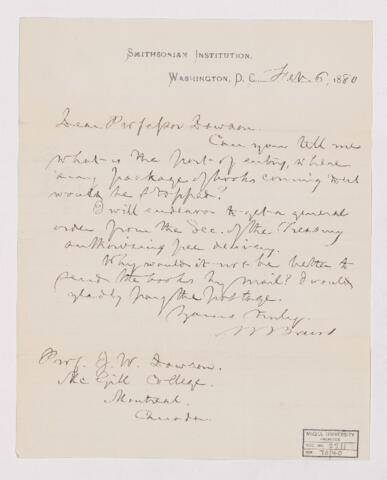 SMITHSONIAN INSTITUTION,
WASHINGTON, D. C. Feb. 6, 1880
Dear Professor Dawson.
Can you tell me
what is the port of entry, where
any package of books coming
would be stopped?
I will endeavor to get a general
order from the Sec. of the Treasury
authorizing free delivery.
Why would it not be better to
send the books by mail? I would
gladly pay the postage.
Yours truly.
Prof. J. W. Dawson.
McGill College.
Montreal.
Canada.
MCGILL UNIVERSITY
ARCHIVES
ACC. NO.
REF.